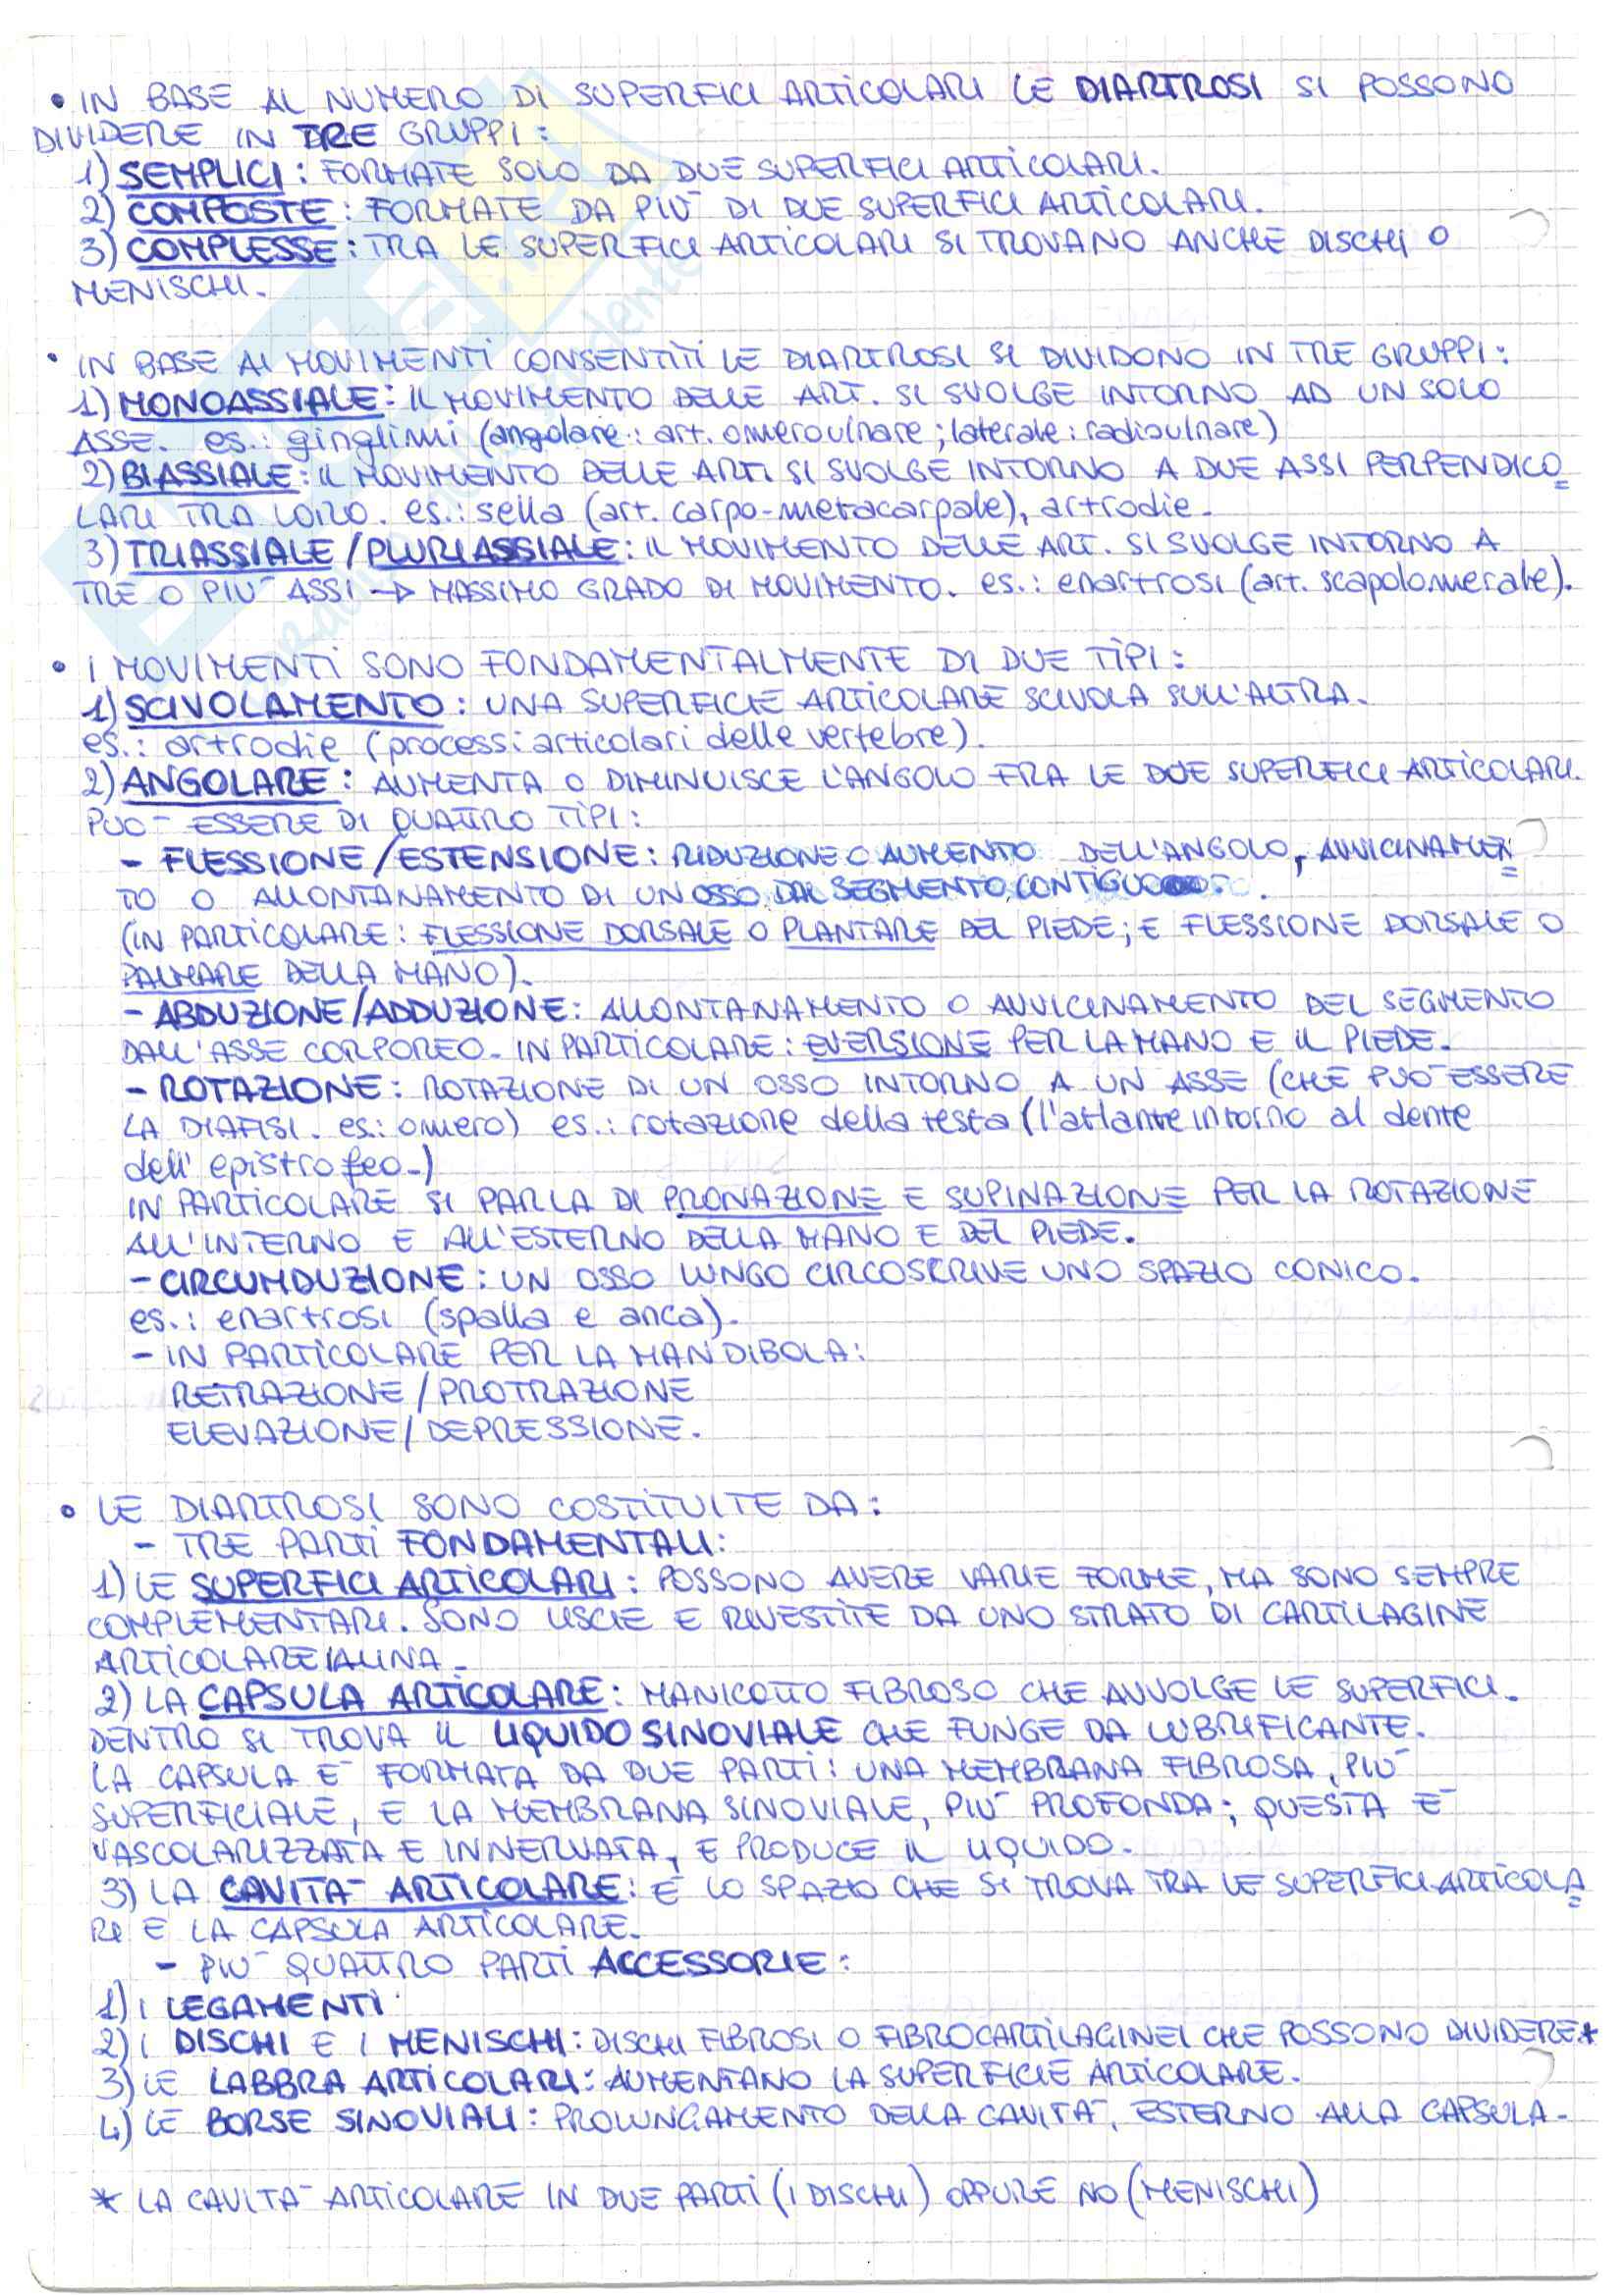 • IN BASE AL NUMERO DI SUPERFICI ARTICOLARI LE DIARTROSI SI POSSONO
DIVIDERE IN TRE GRUPPI:
1) SEMPLICI: FORMATE SOLO DA DUE SUPERFICI ARTICOLARI.
2) COMPOSTE: FORMATE DA PIU' DI DUE SUPERFICI ARTICOLARI.
3) COMPLESSE: TRA LE SUPERFICI ARTICOLARI SI TROVANO ANCHE DISCHI O
MENISCHI.
• IN BASE AI MOVIMENTI CONSENTITI LE DIARTROSI SI DIVIDONO IN TRE GRUPPI:
1) MONOASSIALE: IL MOVIMENTO DELLE ART. SI SVOLGE INTORNO AD UN SOLO
ASSE. es.: ginglimi (angolare: art. omeroulnare; laterale: radioulnare)
2) BIASSIALE: IL MOVIMENTO DELLE ART. SI SVOLGE INTORNO A DUE ASSI PERPENDICO=
LARI TRA LORO. es.: sella (art. carpo-metacarpale), artrodie.
3) TRIASSIALE/PLURIASSIALE: IL MOVIMENTO DELLE ART. SI SVOLGE INTORNO A
TRE O PIU' ASSI → MASSIMO GRADO DI MOVIMENTO. es.: enartrosi (art. scapolomerale).
• I MOVIMENTI SONO FONDAMENTALMENTE DI DUE TIPI:
1) SCIVOLAMENTO: UNA SUPERFICIE ARTICOLARE SCIVOLA SULL'ALTRA.
es.: artrodie (processi articolari delle vertebre).
2) ANGOLARE: AUMENTA O DIMINUISCE L'ANGOLO FRA LE DUE SUPERFICI ARTICOLARI.
PUO' ESSERE DI QUATTRO TIPI:
- FLESSIONE/ESTENSIONE: RIDUZIONE O AUMENTO DELL'ANGOLO, AVVICINAMEN=
TO O ALLONTANAMENTO DI UN OSSO DAL SEGMENTO CONTIGUO.
(IN PARTICOLARE: FLESSIONE DORSALE O PLANTARE DEL PIEDE; E FLESSIONE DORSALE O
PALMARE DELLA MANO).
- ABDUZIONE/ADDUZIONE: ALLONTANAMENTO O AVVICINAMENTO DEL SEGMENTO
DALL'ASSE CORPOREO. IN PARTICOLARE: EVERSIONE PER LA MANO E IL PIEDE.
- ROTAZIONE: ROTAZIONE DI UN OSSO INTORNO A UN ASSE (CHE PUO' ESSERE
LA DIAFISI. es.: omero) es.: rotazione della testa (l'atlante intorno al dente
dell'epistrofeo.)
IN PARTICOLARE SI PARLA DI PRONAZIONE E SUPINAZIONE PER LA ROTAZIONE
ALL'INTERNO E ALL'ESTERNO DELLA MANO E DEL PIEDE.
- CIRCUMDUZIONE: UN OSSO LUNGO CIRCOSCRIVE UNO SPAZIO CONICO.
es.: enartrosi (spalla e anca).
- IN PARTICOLARE PER LA MANDIBOLA:
RETRAZIONE/PROTRAZIONE
ELEVAZIONE/DEPRESSIONE.
• LE DIARTROSI SONO COSTITUITE DA:
- TRE PARTI FONDAMENTALI:
1) LE SUPERFICI ARTICOLARI: POSSONO AVERE VARIE FORME, MA SONO SEMPRE
COMPLEMENTARI. SONO LISCIE E RIVESTITE DA UNO STRATO DI CARTILAGINE
ARTICOLARE IALINA.
2) LA CAPSULA ARTICOLARE: MANICOTTO FIBROSO CHE AVVOLGE LE SUPERFICI.
DENTRO SI TROVA IL LIQUIDO SINOVIALE CHE FUNGE DA LUBRIFICANTE.
LA CAPSULA E' FORMATA DA DUE PARTI: UNA MEMBRANA FIBROSA, PIU'
SUPERFICIALE, E LA MEMBRANA SINOVIALE, PIU' PROFONDA; QUESTA E'
VASCOLARIZZATA E INNERVATA, E PRODUCE IL LIQUIDO.
3) LA CAVITA' ARTICOLARE: E' LO SPAZIO CHE SI TROVA TRA LE SUPERFICI ARTICOLA=
RI E LA CAPSULA ARTICOLARE.
- PIU' QUATTRO PARTI ACCESSORIE:
1) I LEGAMENTI
2) I DISCHI E I MENISCHI: DISCHI FIBROSI O FIBROCARTILAGINEI CHE POSSONO DIVIDERE*
3) LE LABBRA ARTICOLARI: AUMENTANO LA SUPERFICIE ARTICOLARE.
4) LE BORSE SINOVIALI: PROLUNGAMENTO DELLA CAVITA', ESTERNO ALLA CAPSULA.
* LA CAVITA' ARTICOLARE IN DUE PARTI (I DISCHI) OPPURE NO (MENISCHI)